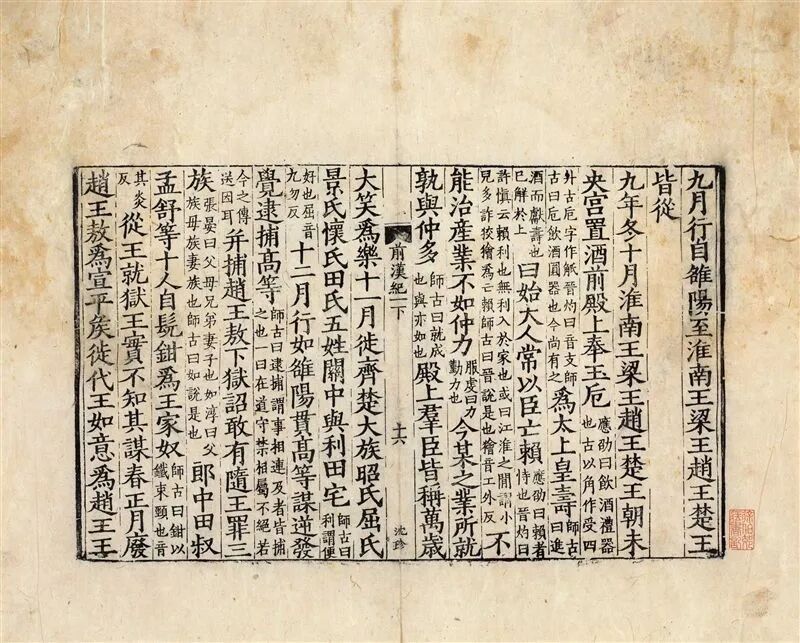 九月行自雒陽至淮南王梁王趙王楚王
皆從
九年冬十月淮南王梁王趙王楚王朝未
央宫置酒前殿上奉玉巵應劭曰飲酒禮器也古以角作受四
升古巵字作觝晉灼曰音支師古曰巵飲酒圓器也今尚有之爲太上皇壽師古曰進
酒而獻壽也已解於上曰始大人常以臣亡賴應劭曰賴者恃也晉灼曰
許慎云賴利也無利入於家也或曰江淮之閒謂小兒多詐狡獪爲亡賴師古曰晉說是也獪音工外反不
能治産業不如仲力服虔曰力勤力也今某之業所就
孰與仲多師古曰就成也與亦如也殿上羣臣皆稱萬歳
前漢紀一下
十六
沈珍
大笑爲樂十一月徙齊楚大族昭氏屈氏
景氏懷氏田氏五姓關中與利田宅師古曰利謂便
好也屈音九勿反十二月行如雒陽貫髙等謀逆發
覺逮捕髙等師古曰逮捕謂事相連及者皆捕之也一曰在道守禁相屬不絕若
今之傳送囚耳并捕趙王敖下獄詔敢有隨王罪三
族張晏曰父母兄弟妻子也如淳曰父族母族妻族也師古曰如說是也郎中田叔
孟舒等十人自髠鉗爲王家奴師古曰鉗以鐵束頸也音
其炎反從王就獄王實不知其謀春正月廢
趙王敖爲宣平侯徙代王如意爲趙王王